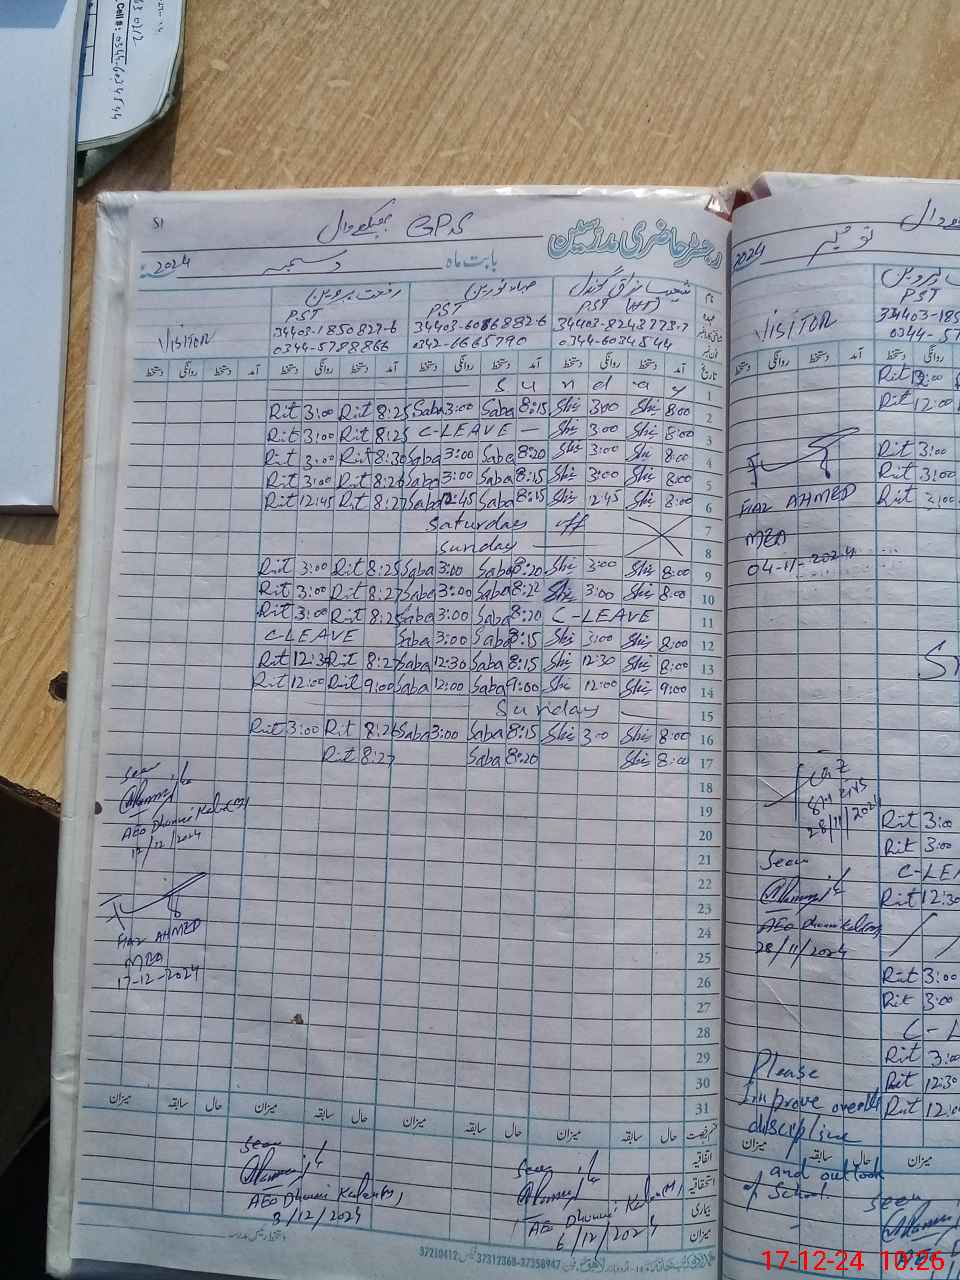 Cell #: 0344-6034544
51
GPS
رجسٹر حاضری مدرسین
2024
دسمبر
بابت ماہ
نام
VISITOR
PST
34403-1850827-6
0344-5788866
PST
34403-6086882-6
0342-6665790
PST (HT)
34403-8248778-7
0344-6034544
دستخط روانگی دستخط آمد دستخط روانگی دستخط آمد دستخط روانگی دستخط آمد دستخط روانگی دستخط آمد تاریخ
Sunday 1
Rit 3:00 Rit 8:25 Saba 3:00 Saba 8:15 Shi 3:00 Shi 8:00 2
Rit 3:00 Rit 8:25 C-LEAVE — Shi 3:00 Shi 8:00 3
Rit 3:00 Rit 8:30 Saba 3:00 Saba 8:20 Shi 3:00 Shi 8:00 4
Rit 3:00 Rit 8:26 Saba 3:00 Saba 8:15 Shi 3:00 Shi 8:00 5
Rit 12:45 Rit 8:27 Saba 12:45 Saba 8:15 Shi 12:45 Shi 8:00 6
Saturday off 7
Sunday 8
Rit 3:00 Rit 8:25 Saba 3:00 Saba 8:20 Shi 3:00 Shi 8:00 9
Rit 3:00 Rit 8:27 Saba 3:00 Saba 8:22 Shi 3:00 Shi 8:00 10
Rit 3:00 Rit 8:25 Saba 3:00 Saba 8:20 C-LEAVE 11
C-LEAVE Saba 3:00 Saba 8:15 Shi 3:00 Shi 8:00 12
Rit 12:30 Rit 8:27 Saba 12:30 Saba 8:15 Shi 12:30 Shi 8:00 13
Rit 12:00 Rit 9:00 Saba 12:00 Saba 9:00 Shi 12:00 Shi 9:00 14
Sunday 15
Rit 3:00 Rit 8:26 Saba 3:00 Saba 8:15 Shi 3:00 Shi 8:00 16
Rit 8:27 Saba 8:20 Shi 8:00 17
18
19
20
21
22
23
24
25
26
27
28
29
30
31
Seen
AEO Dhunni Kalan (M)
12/12/2024
FIAZ AHMED
MEA
17-12-2024
میزان سابقہ حال میزان سابقہ حال میزان سابقہ حال میزان سابقہ حال قسم رخصت
اتفاقیہ
استحقاقیہ
بیماری
میزان
Seen
AEO Dhunni Kalan (M)
3/12/2024
Seen
AEO Dhunni Kalan (M)
6/12/2024
37210412 37312368-37358947
2024
نومبر
VISITOR
PST
34403-185
0344-57
دستخط روانگی دستخط آمد دستخط
Rit 12:00
Rit 12:00
Rit 3:00
Rit 3:00
Rit 3:00
FIAZ AHMED
MEA
04-11-2024
28/11/2024
Seen
AEO Dhunni Kalan (M)
28/11/2024
Rit 3:00
Rit 3:00
C-LEA
Rit 12:30
Rit 3:00
Rit 3:00
C-L
Rit 3:00
Rit 12:30
Rit 12:0
Please
Improve overall
discipline
and outlook
of School.
میزان سابقہ حال میزان
Seen
17-12-24 10:26